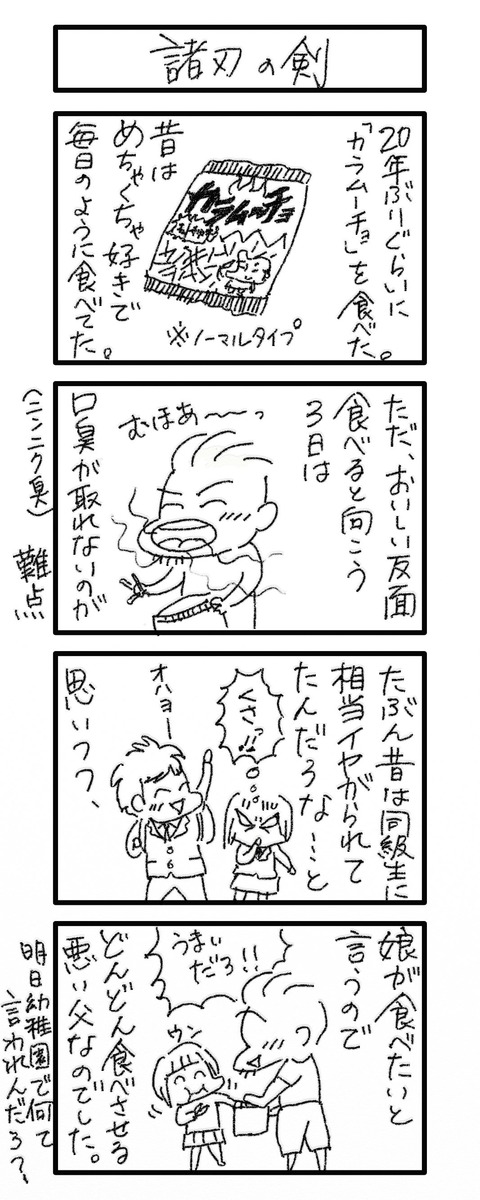 諸刃の剣
20年ぶりぐらいに
「カラムーチョ」を食べた。
カラムーチョ
※ノーマルタイプ
昔は
めちゃくちゃ好きで
毎日のように食べてた。
ただ、おいしい反面
食べると向こう
3日は
むほあ〜〜っ
口臭が取れないのが
(ニンニク臭)
難点
たぶん昔は同級生に
相当イヤがられて
たんだろな…と
くさっ!!
オハヨー
思いつつ、
娘が食べたいと
言うので
うまい
だろ!!
ウン
どんどん食べさせる
悪い父なのでした。
明日幼稚園で何て
言われんだろ?